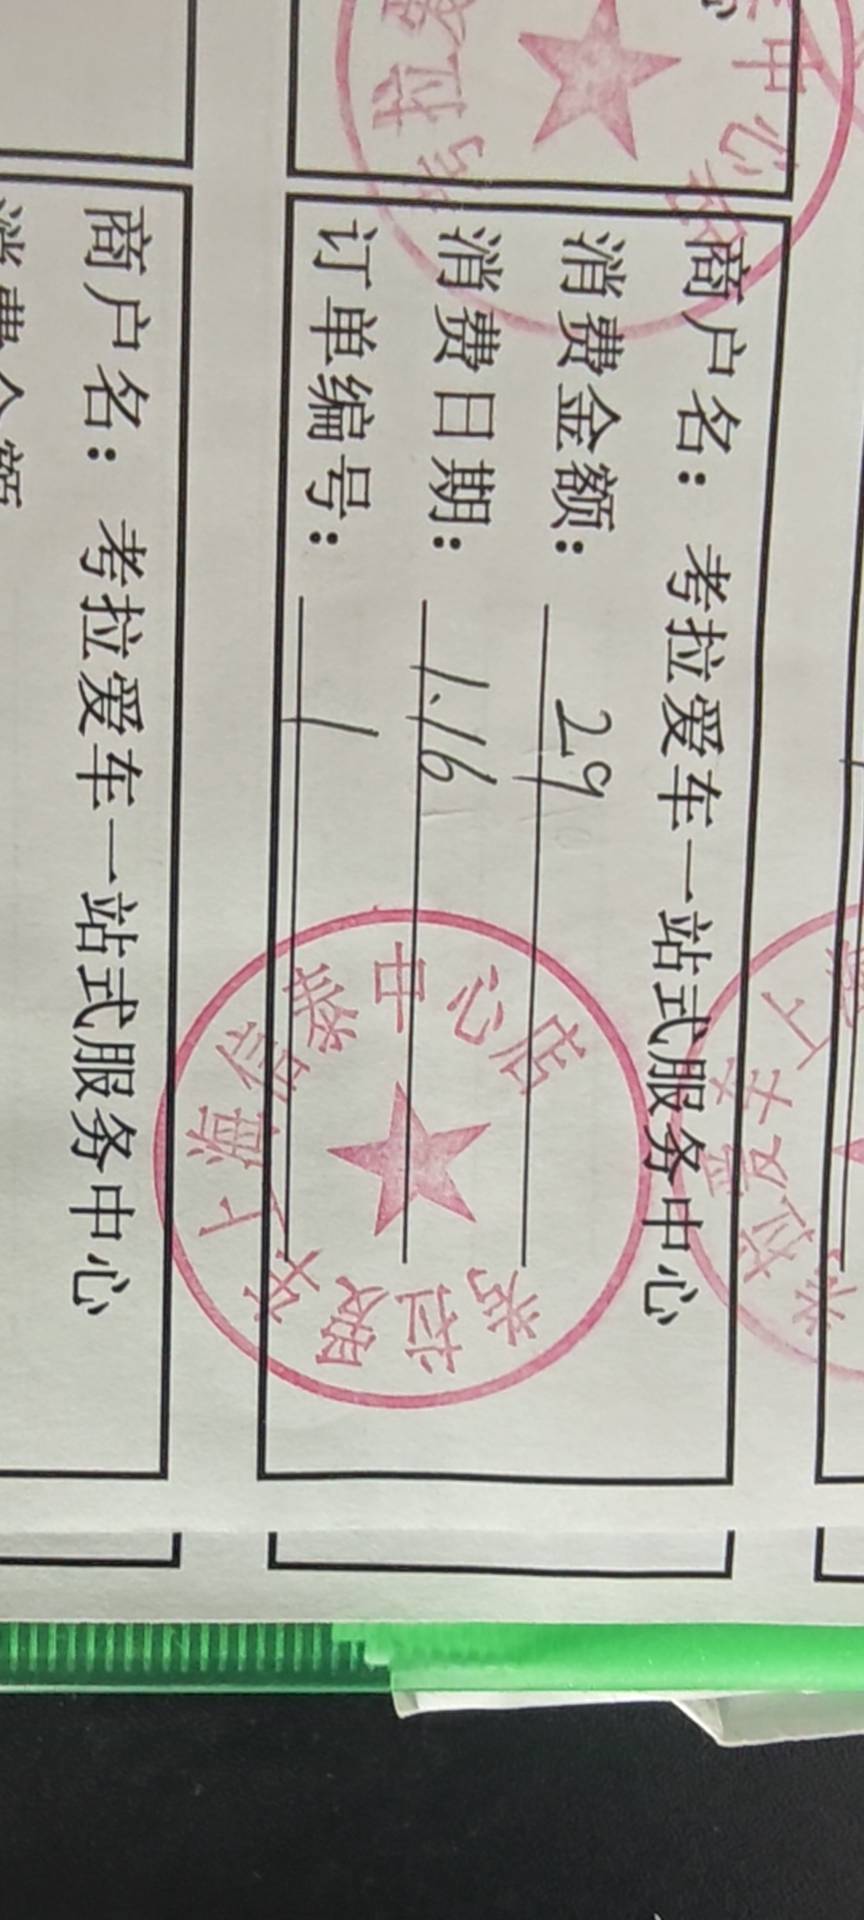 商户名：考拉爱车一站式服务中心
消费金额：29
消费日期：1.16
订单编号：1
考拉爱车上海信雅中心店
商户名：考拉爱车一站式服务中心
消费金额